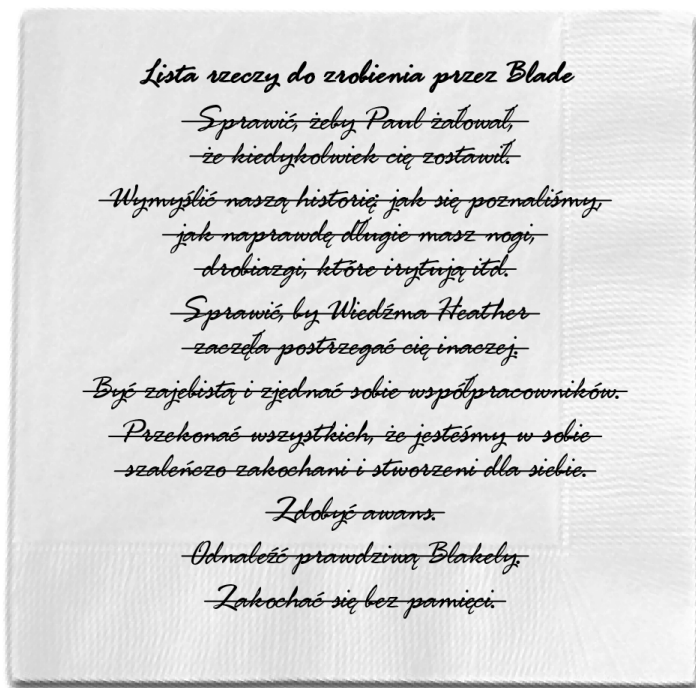 Lista rzeczy do zrobienia przez Blade
Sprawić, żeby Paul żałował,
że kiedykolwiek cię zostawił.
Wymyślić naszą historię: jak się poznaliśmy,
jak naprawdę długie masz nogi,
drobiazgi, które irytują itd.
Sprawić, by Wiedźma Heather
zaczęła postrzegać cię inaczej.
Być zajebistą i zjednać sobie współpracowników.
Przekonać wszystkich, że jesteśmy w sobie
szaleńczo zakochani i stworzeni dla siebie.
Zdobyć awans.
Odnaleźć prawdziwą Blakely.
Zakochać się bez pamięci.